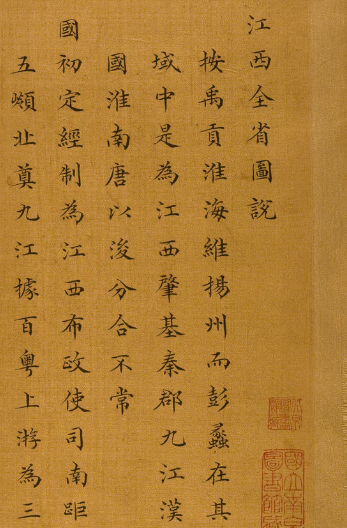 江西全省圖說
按禹貢淮海維揚州而彭蠡在其
域中是為江西肇基秦郡九江漢
國淮南唐以後分合不常
國初定經制為江西布政使司南距
五嶺北奠九江據百粵上游為三